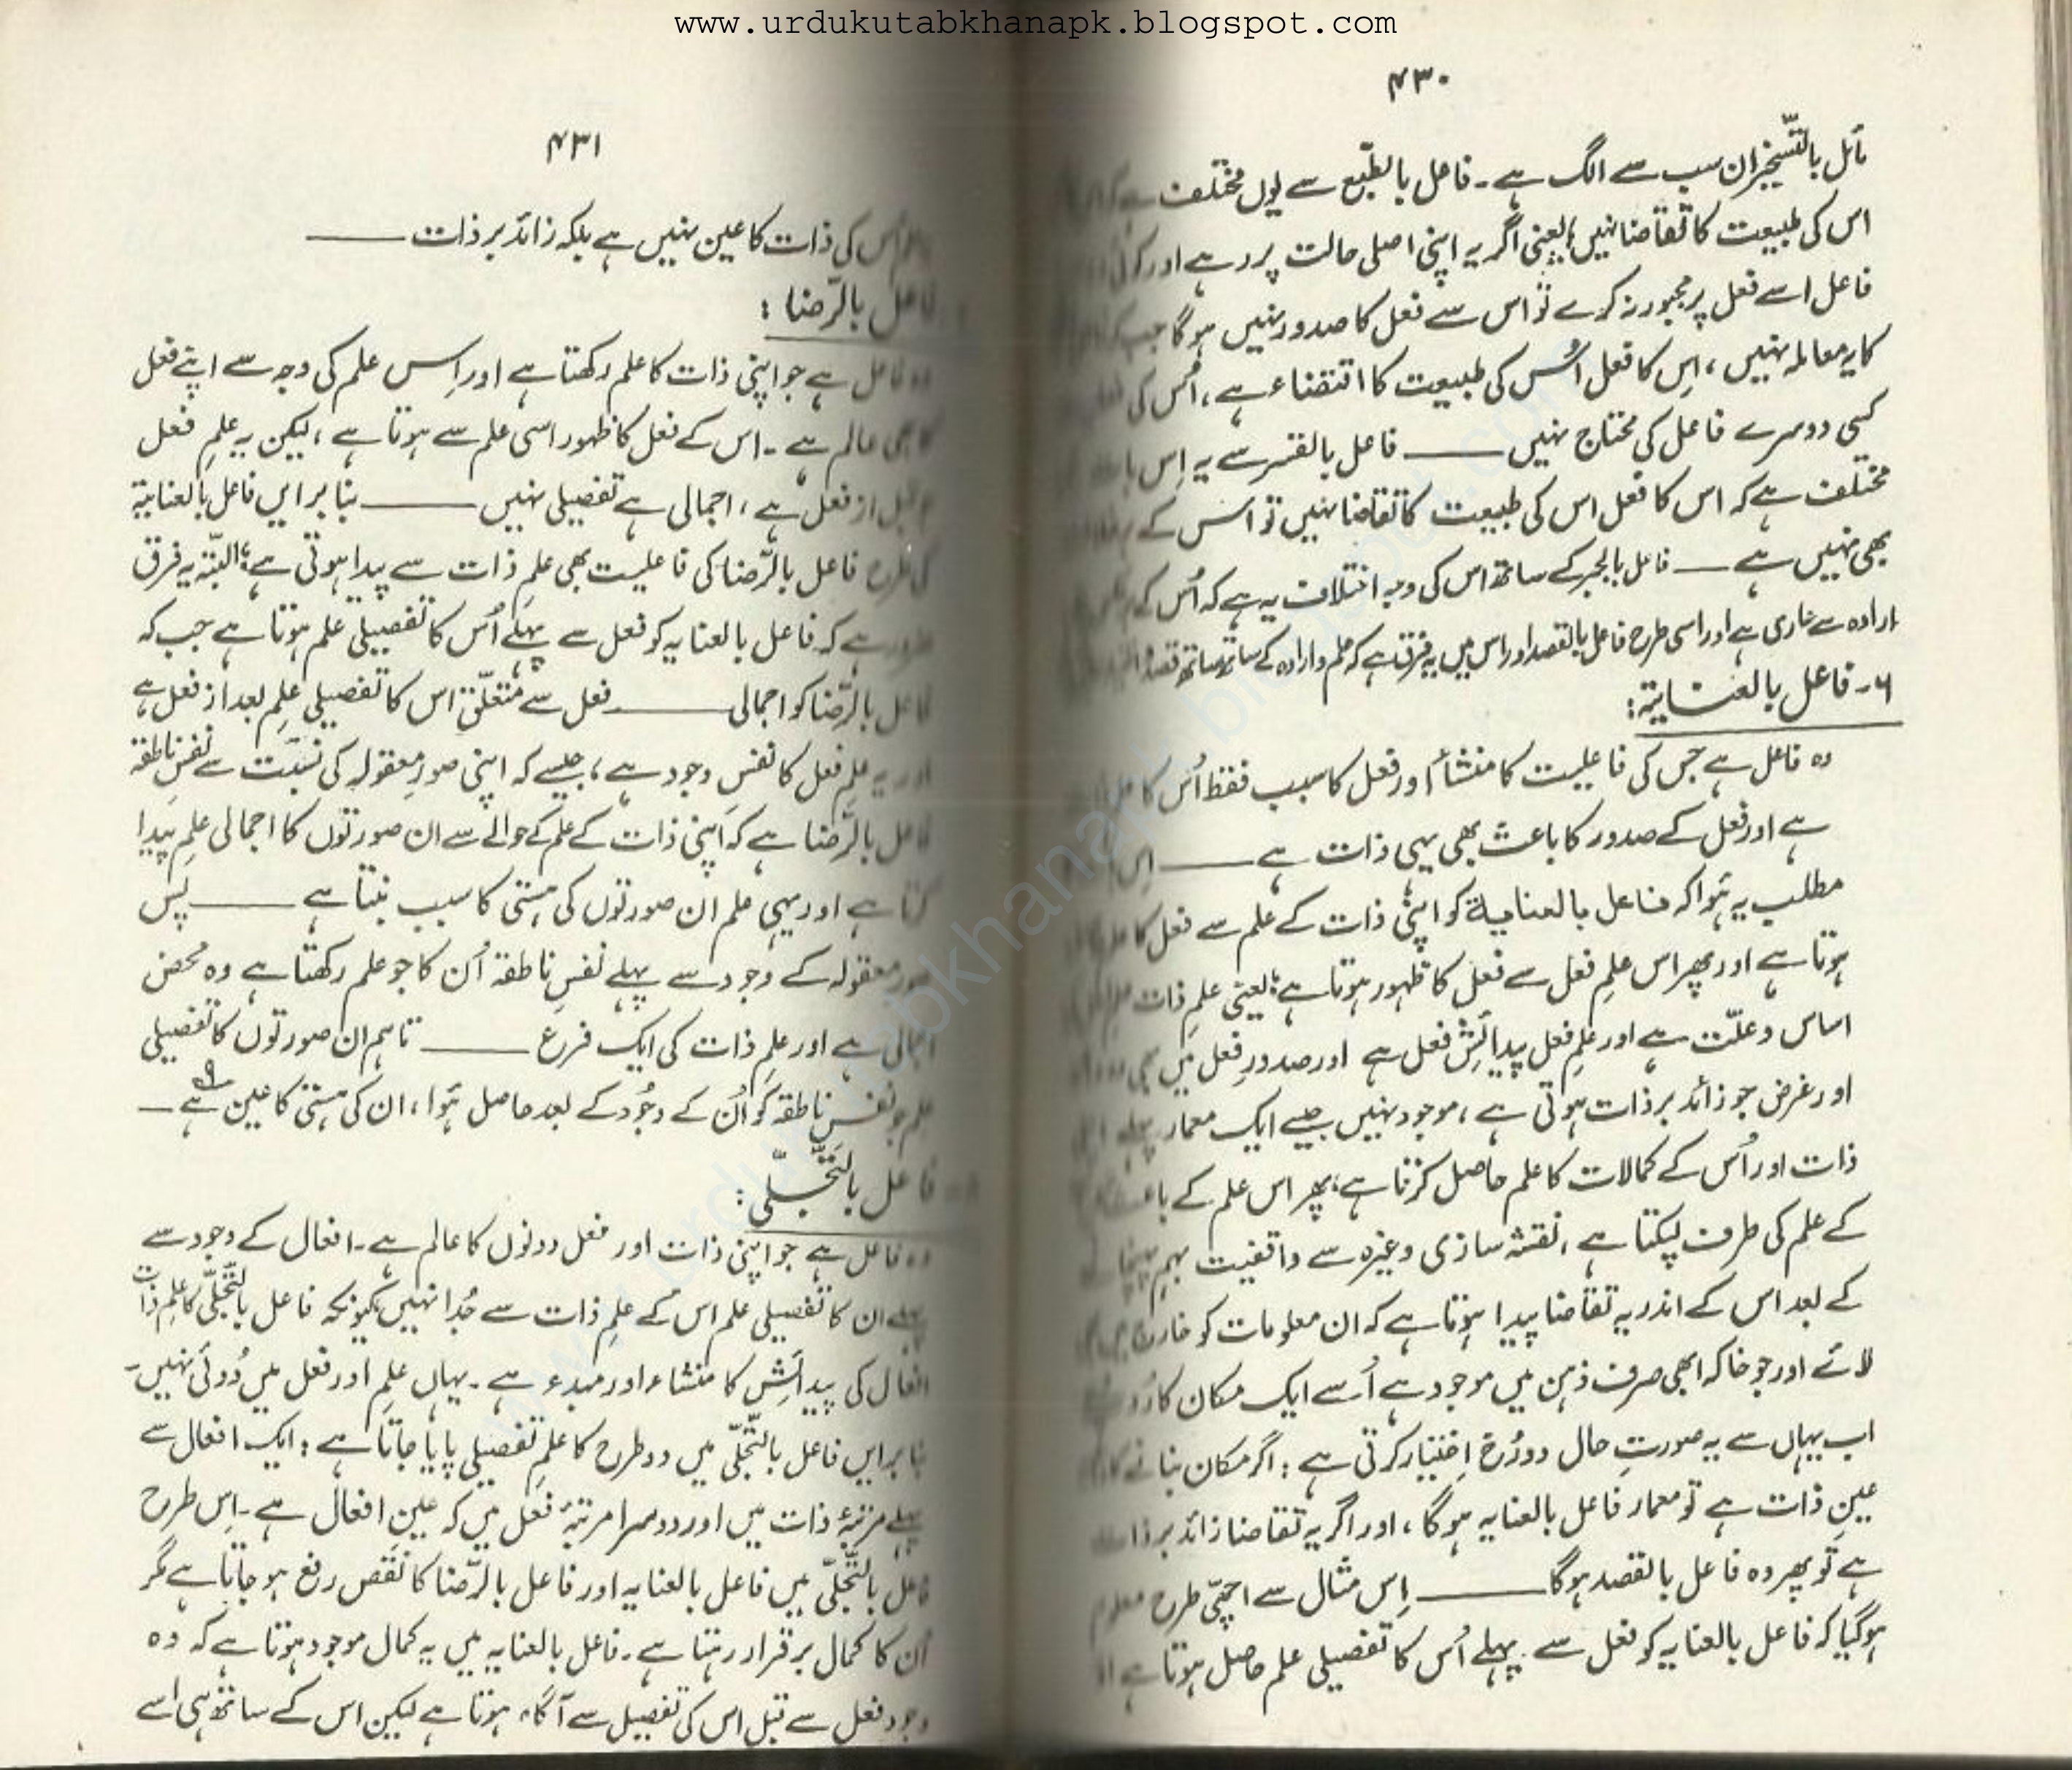 www.urdukutabkhanapk.blogspot.com
۴۳۰
بالتسخیر ان سب سے الگ ہے۔ فاعل بالطّبع سے یوں مختلف ہے کہ
اس کی طبیعت کا تقاضا نہیں؛ یعنی اگر یہ اپنی اصلی حالت پر رہے اور کوئی
فاعل اسے فعل پر مجبور نہ کرے تو اس سے فعل کا صدور نہیں ہوگا جب کہ
کا یہ معاملہ نہیں، اِس کا فعل اُس کی طبیعت کا اقتضاء ہے، اُس کی
کسی دوسرے فاعل کی محتاج نہیں ـــــ فاعل بالقسر سے یہ اِس بات
مختلف ہے کہ اس کا فعل اس کی طبیعت کا تقاضا نہیں تو اس کے برخلاف
بھی نہیں ہے ـــــ فاعل بالجبر کے ساتھ اس کی وجہ اختلاف یہ ہے کہ اُس کے
ارادہ سے عاری ہے اور اسی طرح فاعل بالقصد اور اس میں یہ فرق ہے کہ علم و ارادہ کے ساتھ ساتھ قصد
۶۔ فاعل بالعنایۃ:
وہ فاعل ہے جس کی فاعلیت کا منشأ اور فعل کا سبب فقط اُس کا
ہے اور فعل کے صدور کا باعث بھی یہی ذات ہے ـــــ اِس
مطلب یہ ہُوا کہ فاعل بالعنایۃ کو اپنی ذات کے علم سے فعل کا علم
ہوتا ہے اور پھر اس علمِ فعل سے فعل کا ظہور ہوتا ہے؛ یعنی علمِ ذات
اساس و علّت ہے اور علمِ فعل پیدائشِ فعل ہے اور صدورِ فعل میں بھی
اور غرض جو زائد بر ذات ہوتی ہے، موجود نہیں جیسے ایک معمار پہلے
ذات اور اُس کے کمالات کا علم حاصل کرتا ہے، پھر اس علم کے باعث
کے علم کی طرف لپکتا ہے، نقشہ سازی وغیرہ سے واقفیت بہم پہنچانے
کے بعد اس کے اندر یہ تقاضا پیدا ہوتا ہے کہ ان معلومات کو خارج میں
لائے اور جو خاکہ ابھی صرف ذہن میں موجود ہے اُسے ایک مکان کا رُوپ
اب یہاں سے یہ صورتِ حال دو رُخ اِختیار کرتی ہے: اگر مکان بنانے کا
عینِ ذات ہے تو معمار فاعل بالعنایہ ہوگا، اور اگر یہ تقاضا زائد بر ذات
ہے تو پھر وہ فاعل بالقصد ہوگا ـــــ اِس مثال سے اچھّی طرح معلوم
ہوگیا کہ فاعل بالعنایہ کو فعل سے پہلے اُس کا تفصیلی علم حاصل ہوتا ہے اور
۴۳۱
اُس کی ذات کا عین نہیں ہے بلکہ زائد بر ذات ـــــ
فاعل بالرّضا:
وہ فاعل ہے جو اپنی ذات کا علم رکھتا ہے اور اِس علم کی وجہ سے اپنے فعل
کا بھی عالم ہے۔ اس کے فعل کا ظہور اسی علم سے ہوتا ہے، لیکن یہ علمِ فعل
جو قبل از فعل ہے، اجمالی ہے تفصیلی نہیں ـــــ بنا بر ایں فاعل بالعنایۃ
کی طرح فاعل بالرّضا کی فاعلیت بھی علمِ ذات سے پیدا ہوتی ہے؛ البتّہ یہ فرق
ضرور ہے کہ فاعل بالعنایہ کو فعل سے پہلے اُس کا تفصیلی علم ہوتا ہے جب کہ
فاعل بالرّضا کو اجمالی ـــــ فعل سے متعلّق اس کا تفصیلی علم بعد از فعل ہے
اور یہ علمِ فعل کا نفسِ وجود ہے، جیسے کہ اپنی صورِ معقولہ کی نسبت سے نفسِ ناطقہ
فاعل بالرّضا ہے کہ اپنی ذات کے علم کے حوالے سے ان صورتوں کا اجمالی علم پیدا
کرتا ہے اور یہی علم ان صورتوں کی ہستی کا سبب بنتا ہے ـــــ پس
صورِ معقولہ کے وجود سے پہلے نفسِ ناطقہ اُن کا جو علم رکھتا ہے وہ محض
اجمالی ہے اور علمِ ذات کی ایک فرع ـــــ تاہم ان صورتوں کا تفصیلی
علم جو نفسِ ناطقہ کو اُن کے وجُود کے بعد حاصل ہُوا، ان کی ہستی کا عین ہے ـــ
فاعل بالتّجلّی:
وہ فاعل ہے جو اپنی ذات اور فعل دونوں کا عالم ہے۔ افعال کے وجود سے
پہلے ان کا تفصیلی علم اس کے علمِ ذات سے جُدا نہیں کیونکہ فاعل بالتّجلّی کا علمِ ذات
افعال کی پیدائش کا منشاء اور مبدء ہے۔ یہاں علم اور فعل میں دُوئی نہیں۔
بنا بر ایں فاعل بالتّجلّی میں دو طرح کا علمِ تفصیلی پایا جاتا ہے: ایک افعال سے
پہلے مرتبۂ ذات میں اور دوسرا مرتبۂ فعل میں کہ عینِ افعال ہے۔ اِس طرح
فاعل بالتّجلّی میں فاعل بالعنایہ اور فاعل بالرّضا کا نقص رفع ہو جاتا ہے مگر
اُن کا کمال برقرار رہتا ہے۔ فاعل بالعنایہ میں یہ کمال موجود ہوتا ہے کہ وہ
وجودِ فعل سے قبل اس کی تفصیل سے آگاہ ہوتا ہے لیکن اس کے ساتھ ہی اسے